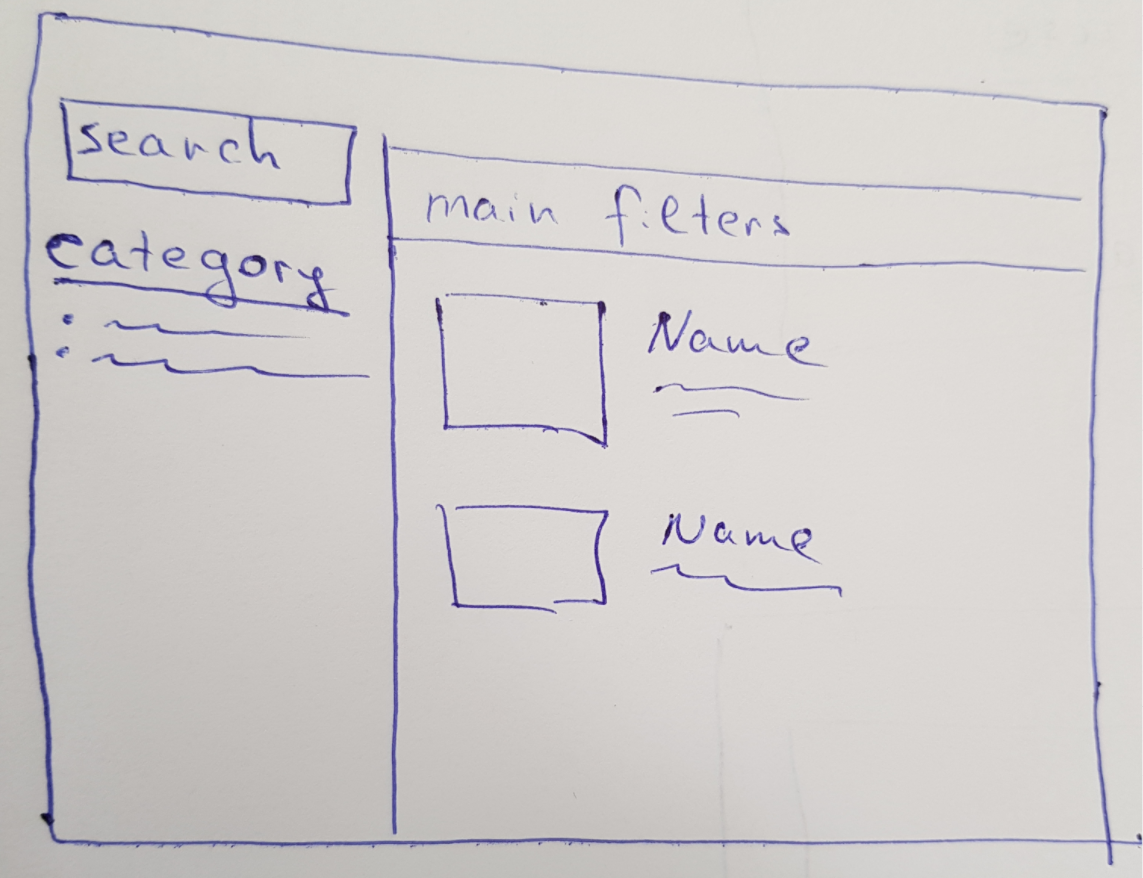 search
category
main filters
Name
Name